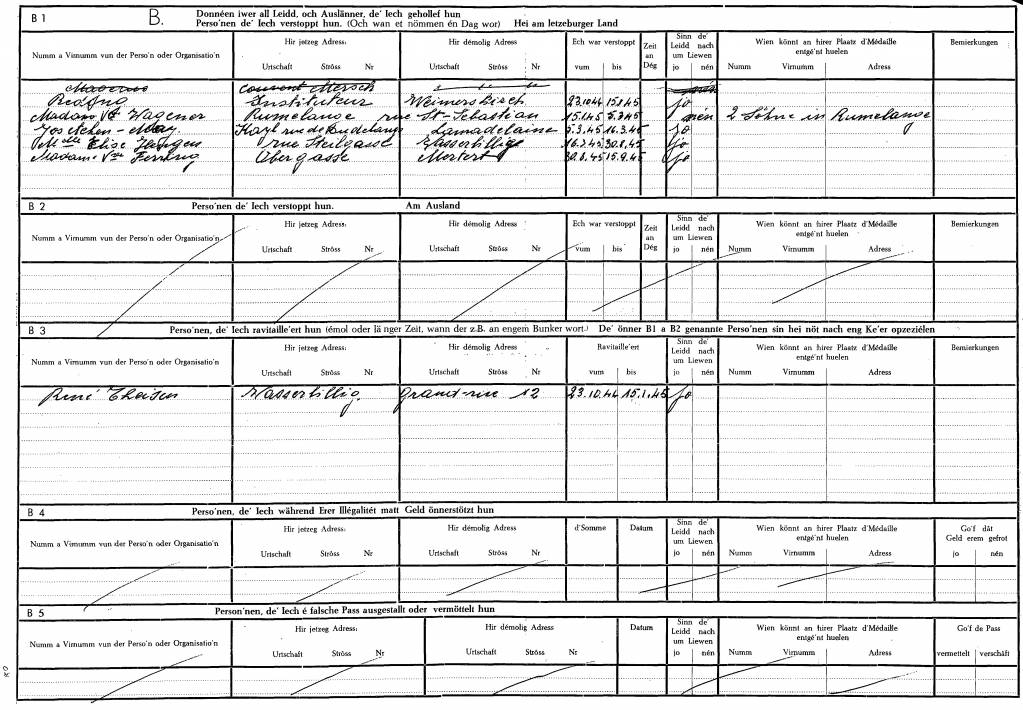 B 1 B. Donnéen iwer all Leidd, och Auslänner, de' Iech gehollef hun
Perso'nen de' Iech verstoppt hun. (Och wan et nömmen én Dag wor) Hei am letzeburger Land
Numm a Virnumm vun der Perso'n oder Organisatio'n
Hir jetzeg Adress:
Urtschaft Ströss Nr
Hir démolig Adress
Urtschaft Ströss Nr
Ech war verstoppt
vum bis
Zeit an Dég
Sinn de' Leidd nach um Liewen
jo nén
Wien könnt an hirer Plaatz d'Médaille entgé'nt huelen
Numm Virnumm Adress
Bemierkungen
Couvent Mersch
Instituteur Weimerskirch 23.10.44 15.1.45 jo
Madame Vve Wagener Rumelange rue St-Sebastian 15.1.45 5.3.45 nén 2 Söhne in Rumelange
Lamadelaine 5.3.45 16.3.45 jo
Melle Elise rue Steilgasse Wasserbillig 16.3.45 30.8.45 jo
Madame Vve Obergasse Mertert 30.8.45 15.9.45 jo
B 2 Perso'nen de' Iech verstoppt hun. Am Ausland
Numm a Virnumm vun der Perso'n oder Organisatio'n
Hir jetzeg Adress:
Urtschaft Ströss Nr
Hir démolig Adress
Urtschaft Ströss Nr
Ech war verstoppt
vum bis
Zeit an Dég
Sinn de' Leidd nach um Liewen
jo nén
Wien könnt an hirer Plaatz d'Médaille entgé'nt huelen
Numm Virnumm Adress
B 3 Perso'nen, de' Iech ravitaille'ert hun (émol oder länger Zeit, wann der z.B. an engem Bunker wort.) De' önner B1 a B2 genannte Perso'nen sin hei nöt nach eng Ke'er opzeziélen
Numm a Virnumm vun der Perso'n oder Organisatio'n
Hir jetzeg Adress:
Urtschaft Ströss Nr
Hir démolig Adress
Urtschaft Ströss Nr
Ravitaille'ert
vum bis
Sinn de' Leidd nach um Liewen
jo nén
Wien könnt an hirer Plaatz d'Médaille entgé'nt huelen
Numm Virnumm Adress
Bemierkungen
René Theisen Wasserbillig. Grand-rue 12 23.10.44 15.1.45 jo
B 4 Perso'nen, de' Iech während Erer Illégalitét matt Geld önnerstötzt hun
Numm a Virnumm vun der Perso'n oder Organisatio'n
Hir jetzeg Adress:
Urtschaft Ströss Nr
Hir démolig Adress
Urtschaft Ströss Nr
d'Somme
Datum
Sinn de' Leidd nach um Liewen
jo nén
Wien könnt an hirer Plaatz d'Médaille entgé'nt huelen
Numm Virnumm Adress
Go'f dât Geld erem gefrot
jo nén
B 5 Person'nen, de' Iech é falsche Pass ausgestallt oder vermöttelt hun
Numm a Virnumm vun der Perso'n oder Organisatio'n
Hir jetzeg Adress:
Urtschaft Ströss Nr
Hir démolig Adress
Urtschaft Ströss Nr
Datum
Sinn de' Leidd nach um Liewen
jo nén
Wien könnt an hirer Plaatz d'Médaille entgé'nt huelen
Numm Virnumm Adress
Go'f de Pass
vermettelt verschäft